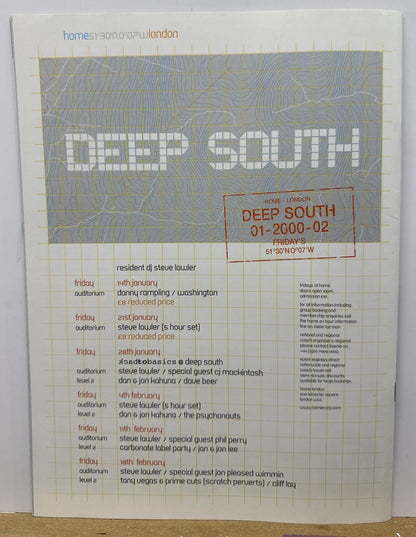 home 51°30'N 0°07'W london
DEEP SOUTH
HOME - LONDON
DEEP SOUTH
01-2000-02
FRIDAY'S
51°30'N 0°07'W
resident dj steve lawler
friday 14th january
auditorium danny rampling / washington
£8 reduced price
friday 21st january
auditorium steve lawler (5 hour set)
£8 reduced price
friday 28th january
backtobasics @ deep south
auditorium steve lawler / special guest cj mackintosh
level 2 dan & jon kahuna / dave beer
friday 4th february
auditorium steve lawler (5 hour set)
level 2 dan & jon kahuna / the psychonauts
friday 11th february
auditorium steve lawler / special guest phil perry
level 2 carbonate label party / jon & jon lee
friday 18th february
auditorium steve lawler / special guest jon pleased wimmin
level 2 tony vegas & prime cuts (scratch perverts) / cliff loy
fridays at home.
doors open 10pm.
admission £10.
for all information including
group booking and
membership enquiries call
the home 24 hour information
line on
national and regional
coach organisers required
please contact
event express direct
nationwide and regional
coach travel call
discounts
available for large bookings.
home london
one leicester square
london
www.homecorp.com